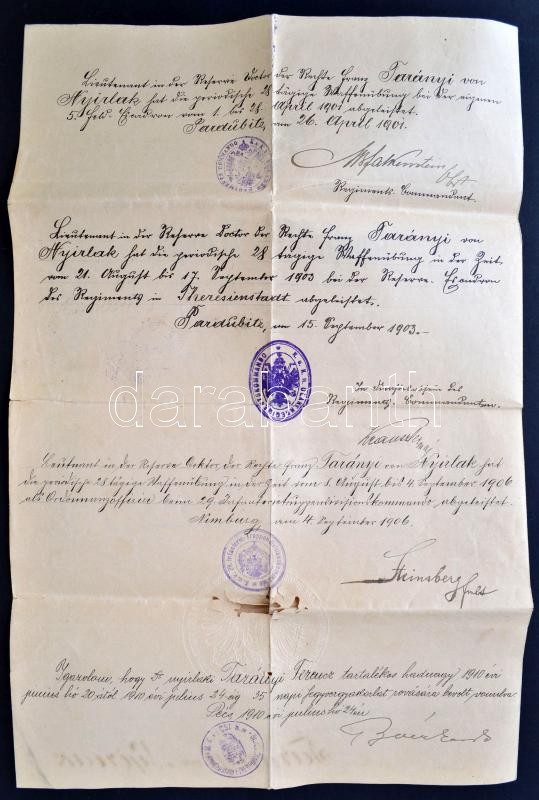 Lieutenant in der Reserve Doctor der Rechte Franz Tarányi von
Nyirlak hat die periodische 28 tägige Waffenübung bei der eigenen
5. Feld. Escadron vom 1. bis 28. April 1901 abgeleistet.
Pardubitz, am 26. April 1901.
Obst
Regiments-Commandant.
Lieutenant in der Reserve Doctor der Rechte Franz Tarányi von
Nyirlak hat die periodische 28 tägige Waffenübung in der Zeit
vom 21. August bis 17. September 1903 bei der Reserve-Escadron
des Regiments in Theresienstadt abgeleistet.
Pardubitz, am 15. September 1903.-
darabanth
In Abwesenheit des
Regiments-Commandanten.
Lieutenant in der Reserve Doktor der Rechte Franz Tarányi von Nyirlak hat
die periodische 28 tägige Waffenübung in der Zeit vom 8. August bis 4. September 1906
als Ordonnanzoffizier beim 29. Infanterietruppendivisionskommando abgeleistet.
Nimburg, am 4. September 1906.
Steinsberg
Igazolom, hogy Dr nyirlaki Tarányi Ferencz tartalékos hadnagy 1910 évi
junius hó 20.ától 1910 évi julius 24-ig 35 napi fegyvergyakorlat rovására bevolt vonulva
Pécs, 1910 évi julius hó 24én